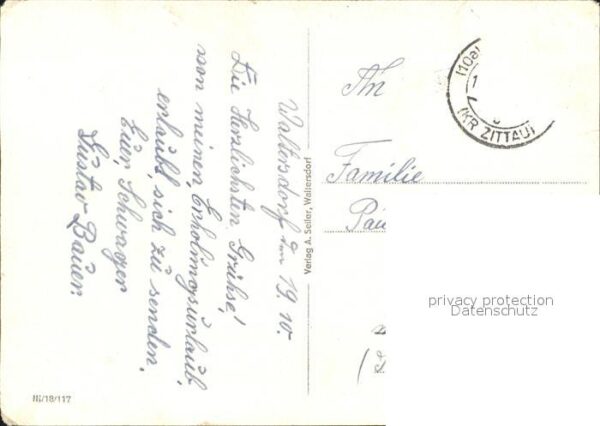 Waltersdorf am 19.10.
Die Herzlichsten Grühse!
von meinen Erholungsurlaub
erlaubt, sich zu senden.
Euer Schwager
Gustav Bauer.
Verlag A. Seiler, Waltersdorf
An
Familie
(10a)
1
(KR ZITTAU)
privacy protection
Datenschutz
III/18/117